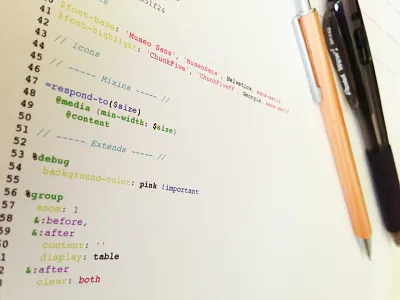 40
41 $font-base: 'Museo Sans', 'MuseoSans', Helvetica, sans-serif
42 $font-highlight: 'ChunkFive', 'ChunkFiveFF', Georgia, sans-serif
43
44 // Icons
45
46 // ----- Mixins ----- //
47
48 =respond-to($size)
49 @media (min-width: $size)
50 @content
51
52 // ----- Extends ----- //
53 %debug
54 background-color: pink !important
55
56 %group
57 zoom: 1
58 &:before,
59 &:after
content: ''
display: table
&:after
clear: both